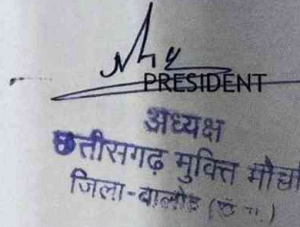 PRESIDENT
अध्यक्ष
छत्तीसगढ़ मुक्ति मोर्चा
जिला-बालोद (छ.ग.)